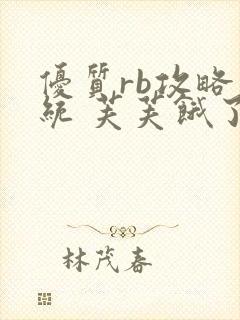 優質rb攻略
統 芙芙餓了
林茂春